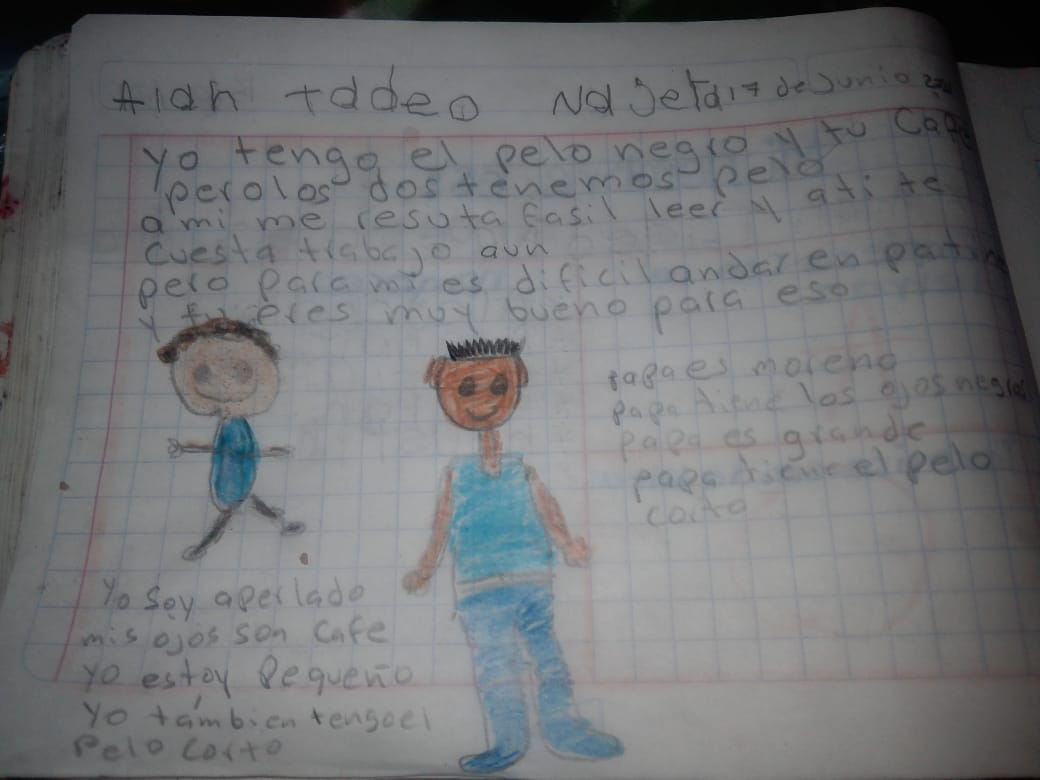 Alan tadeo Najera 17 de junio
yo tengo el pelo negro y tu Cafe
pero los dos tenemos pelo
a mi me resuta fasil leer y ati te
cuesta trabajo aun
pero para mi es dificil andar en patin
y tu eres muy bueno para eso
papa es moreno
papa tiene los ojos negros
papa es grande
papa tiene el pelo
corto
Yo soy aperlado
mis ojos son cafe
yo estoy pequeño
yo támbien tengo el
pelo corto